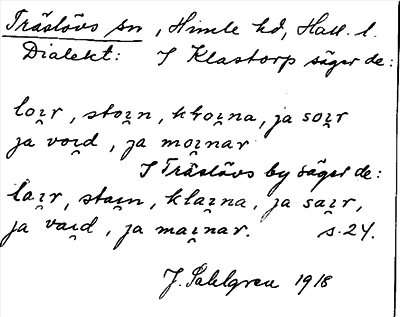 Träslövs sn, Himle hd, Hall. l.
Dialekt: I Klastorp säger de:
loi̯r, stoi̯n, kloi̯na, ja soi̯r
ja voi̯d, ja moi̯nar
I Träslövs by säger de:
lai̯r, stai̯n, klai̯na, ja sai̯r,
ja vai̯d, ja mai̯nar. s. 24.
J. Sahlgren 1918